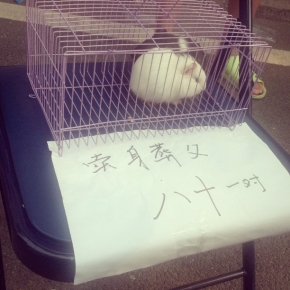 卖身葬父
八十一对